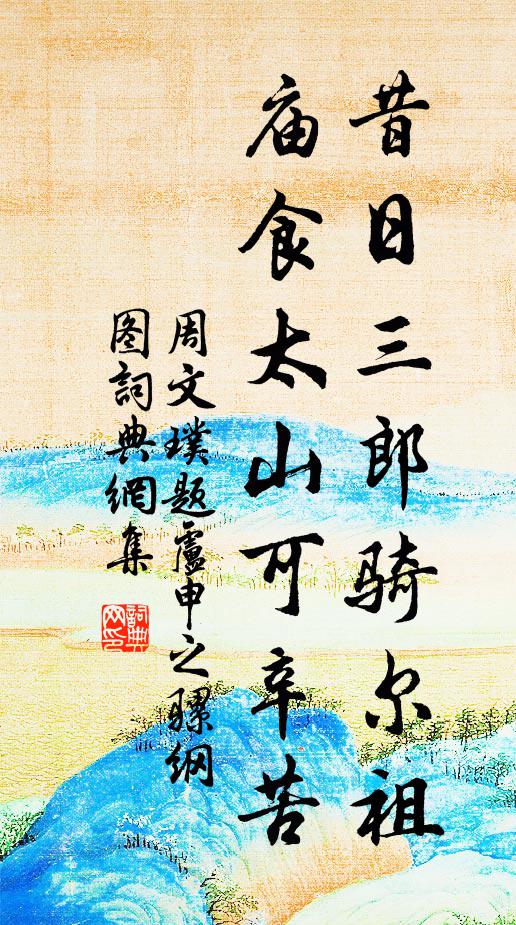 昔日三郎骑尔祖
庙食太山可辛苦
周文璞题卢申之骡纲
图詞典網集
詞典网印